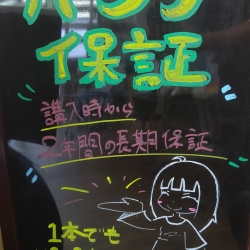 保証
講入時から
2年間の長期保証
1本でも